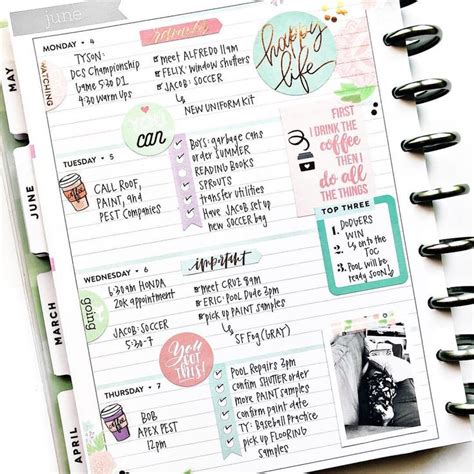 june
MAY
JUNE
MARCH
APRIL
MONDAY • 4
WATCHING
TYSON:
DCS Championship
Game 5:30 D1
4:30 WARM UPS
reminders
meet ALFREDO 11am
FELIX: window shutters
JACOB: SOCCER
NEW UNIFORM KIT
happy
life
you
can
TUESDAY • 5
CALL ROOF,
PAINT, and
PEST COMPANIES
BOYS: garbage cans
order SUMMER
READING BOOKS
SPROUTS
transfer utilities
Have JACOB set up
new SOCCER bag
FIRST
I DRINK THE
COFFEE
THEN I
do ALL
THE THINGS
TOP THREE
1. DODGERS
WIN
2. on to the
TOC
3. POOL will be
ready soon!
WEDNESDAY • 6
going
6:30am HONDA
20k appointment
JACOB: SOCCER
5:30-7
important
meet CRUZ 8am
ERIC: POOL Dude 3pm
pick up PAINT samples
SF FOG (GRAY)
YOU
GOT
THIS!
THURSDAY • 7
BOB
APEX PEST
12pm
POOL Repairs 3pm
confirm SHUTTER order
more PAINT samples
confirm paint date
TY: Baseball Practice
pick up FLOORING
SAMPLES